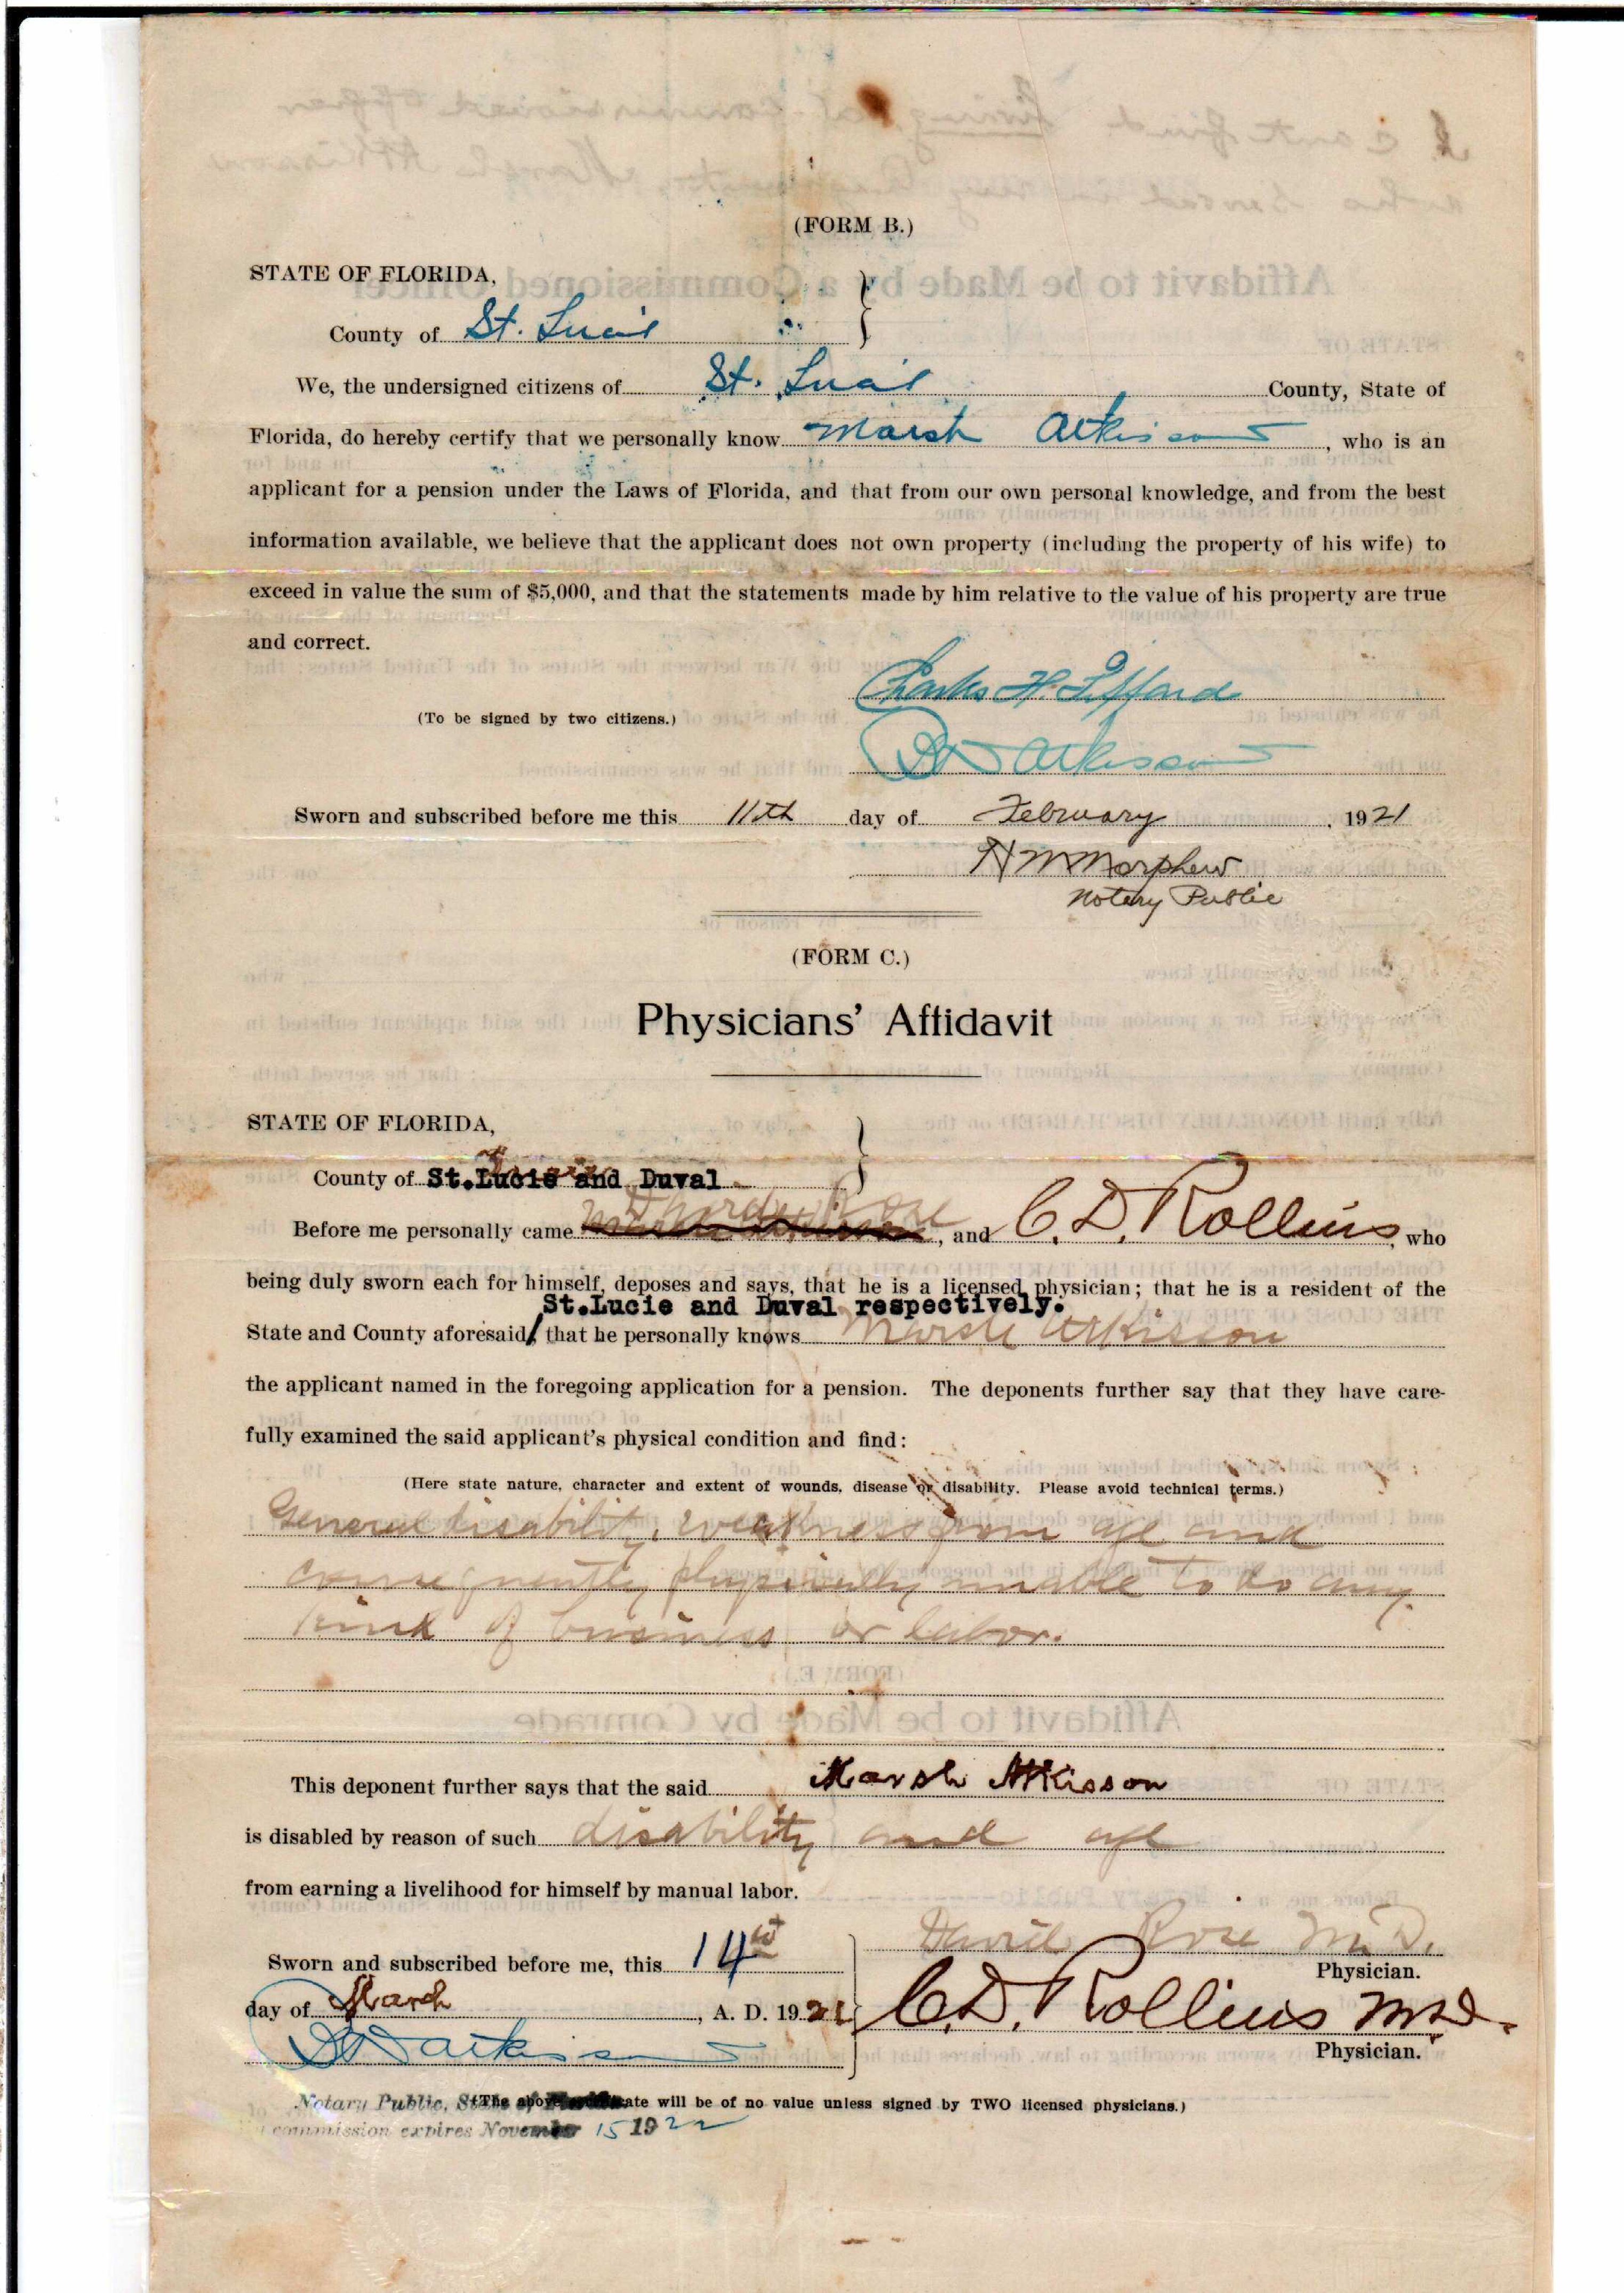 (FORM B.)
STATE OF FLORIDA,
County of St. Lucie
We, the undersigned citizens of St. Lucie County, State of
Florida, do hereby certify that we personally know Marsh Atkisson, who is an
applicant for a pension under the Laws of Florida, and that from our own personal knowledge, and from the best
information available, we believe that the applicant does not own property (including the property of his wife) to
exceed in value the sum of $5,000, and that the statements made by him relative to the value of his property are true
and correct.
Charles H. Gifford
(To be signed by two citizens.)
Atkisson
Sworn and subscribed before me this 11th day of February, 1921
H M Morphew
Notary Public
(FORM C.)
Physicians' Affidavit
STATE OF FLORIDA,
County of St.Lucie and Duval
Before me personally came Rose, and C. D. Rollins, who
being duly sworn each for himself, deposes and says, that he is a licensed physician; that he is a resident of the
St.Lucie and Duval respectively.
State and County aforesaid/ that he personally knows Marsh Atkisson
the applicant named in the foregoing application for a pension. The deponents further say that they have care-
fully examined the said applicant's physical condition and find:
(Here state nature, character and extent of wounds, disease or disability. Please avoid technical terms.)
General disability, weakness from age and
consequently physically unable to do any
kind of business or labor.
This deponent further says that the said Marsh Atkisson
is disabled by reason of such disability and age
from earning a livelihood for himself by manual labor.
David Rose M.D.
Sworn and subscribed before me, this 14
Physician.
day of March, A. D. 1921
C.D. Rollins M.D.
Atkisson
Physician.
Notary Public, (The above will be of no value unless signed by TWO licensed physicians.)
commission expires November 15 1922